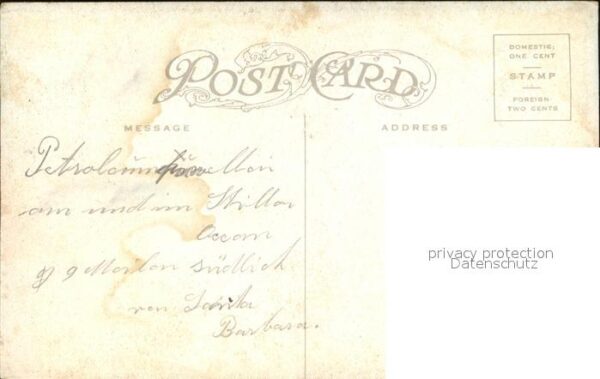 POST CARD
DOMESTIC;
ONE CENT
STAMP
FOREIGN
TWO CENTS
MESSAGE
ADDRESS
Petroleum
am und im Stillen
Ocean
9 Meilen südlich
von Santa
Barbara.
privacy protection
Datenschutz